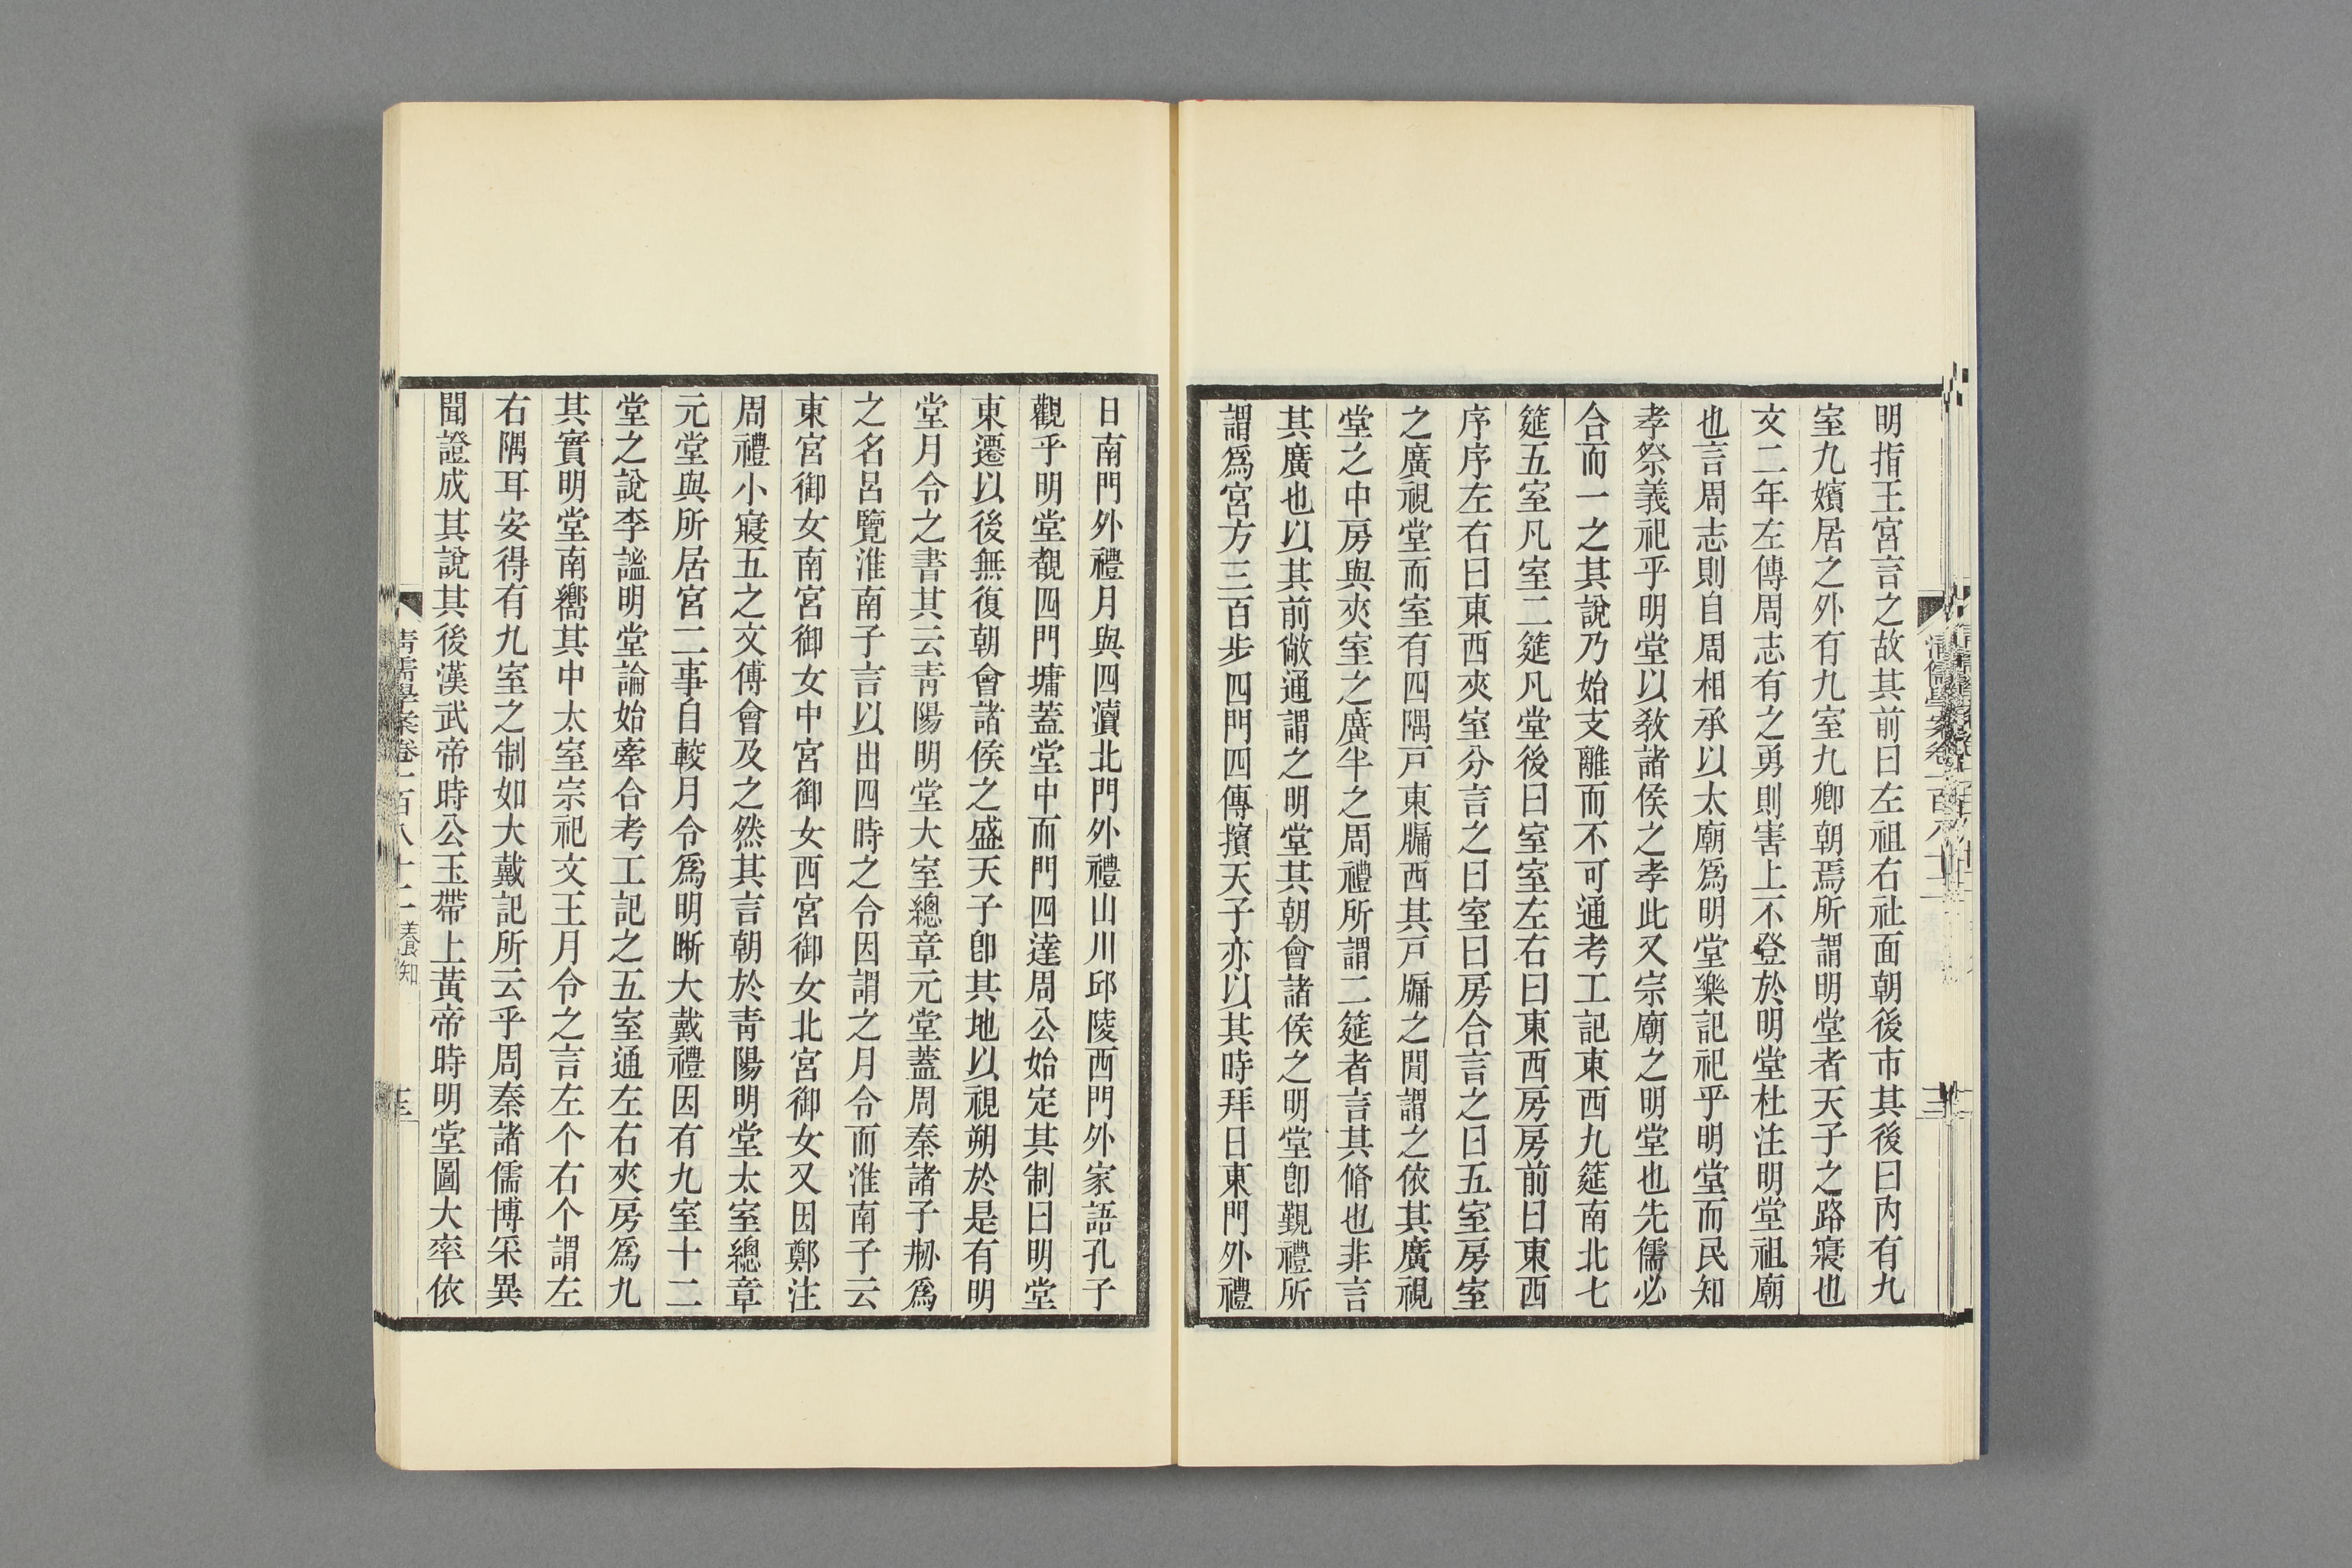 明指王宮言之故其前曰左祖右社面朝後市其後曰內有九
室九嬪居之外有九室九卿朝焉所謂明堂者天子之路寢也
文二年左傳周志有之勇則害上不登於明堂杜注明堂祖廟
也言周志則自周相承以太廟爲明堂樂記祀乎明堂而民知
孝祭義祀乎明堂以敎諸侯之孝此又宗廟之明堂也先儒必
合而一之其說乃始支離而不可通考工記東西九筵南北七
筵五室凡室二筵凡堂後曰室室左右曰東西房房前曰東西
序序左右曰東西夾室分言之曰室曰房合言之曰五室房室
之廣視堂而室有四隅戸東牖西其戸牖之閒謂之依其廣視
堂之中房與夾室之廣半之周禮所謂二筵者言其脩也非言
其廣也以其前敞通謂之明堂其朝會諸侯之明堂卽覲禮所
謂爲宮方三百步四門四傳擯天子亦以其時拜日東門外禮
日南門外禮月與四瀆北門外禮山川邱陵西門外家語孔子
觀乎明堂覩四門墉蓋堂中而門四達周公始定其制曰明堂
東遷以後無復朝會諸侯之盛天子卽其地以視朔於是有明
堂月令之書其云靑陽明堂大室總章元堂蓋周秦諸子刱爲
之名呂覽淮南子言以出四時之令因謂之月令而淮南子云
東宮御女南宮御女中宮御女西宮御女北宮御女又因鄭注
周禮小寢五之文傅會及之然其言朝於靑陽明堂太室總章
元堂與所居宮二事自較月令爲明晰大戴禮因有九室十二
堂之說李謐明堂論始牽合考工記之五室通左右夾房爲九
其實明堂南嚮其中太室宗祀文王月令之言左个右个謂左
右隅耳安得有九室之制如大戴記所云乎周秦諸儒博采異
聞證成其說其後漢武帝時公玉帶上黃帝時明堂圖大率依
清儒學案卷一百八十二 養知